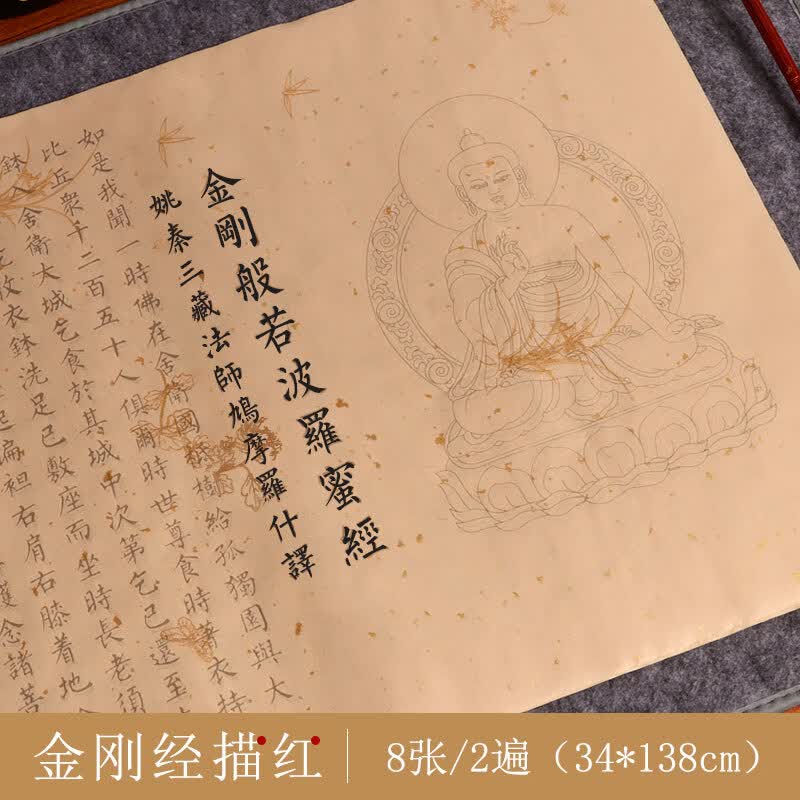 金剛般若波羅蜜經
姚秦三藏法師鳩摩羅什譯
如是我聞一時佛在舍衛國祇樹給孤獨園與大
比丘衆千二百五十人俱爾時世尊食時著衣持
鉢入舍衛大城乞食於其城中次第乞已還至
收衣鉢洗足已敷座而坐時長老須
起偏袒右肩右膝着地
護念諸菩
金刚经描红
8张/2遍（34*138cm）